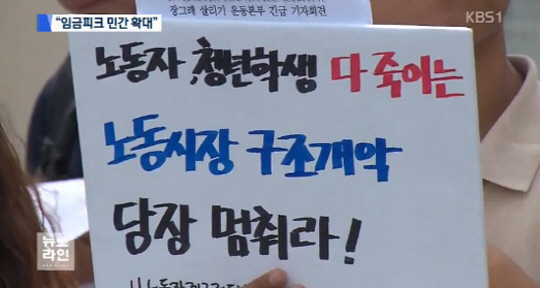 "임금피크 민간 확대"
KBS1
장그래 살리기 운동본부 긴급 기자회견
노동자, 청년학생 다 죽이는
노동시장 구조개악
당장 멈춰라!
뉴스
라인